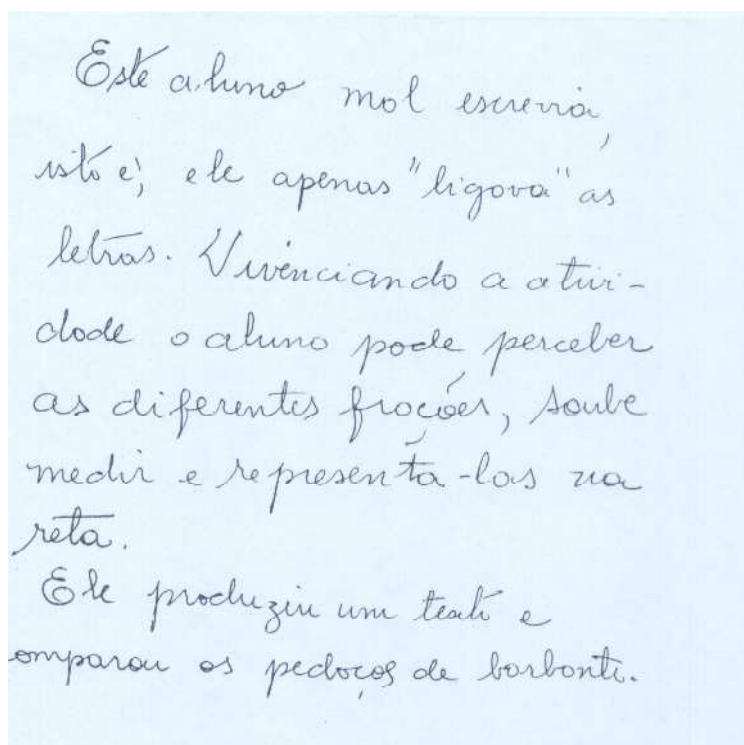 Este aluno mal escrevia,
isto é, ele apenas "ligava" as
letras. Vivênciando a ativi-
dade o aluno pode perceber
as diferentes frações, soube
medir e representá-las na
reta.
Ele produziu um texto e
omparou os pedaços de barbante.